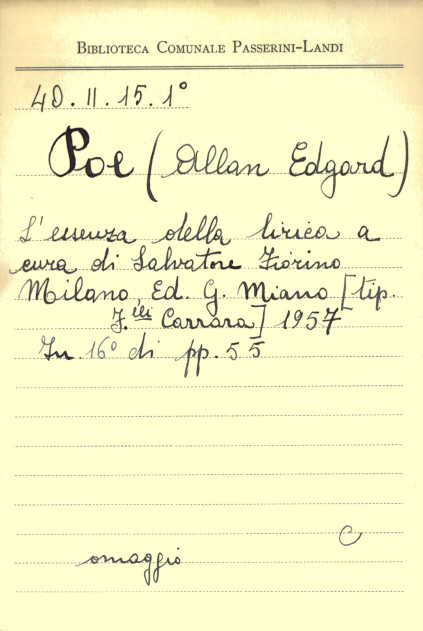 BIBLIOTECA COMUNALE PASSERINI-LANDI
4D. II. 15. 1°
Poe (Allan Edgard)
L'essenza della lirica a
cura di Salvatore Fiorino
Milano, Ed. G. Miano [tip.
F.lli Carrara] 1957
In 16° di pp. 55
C
omaggio